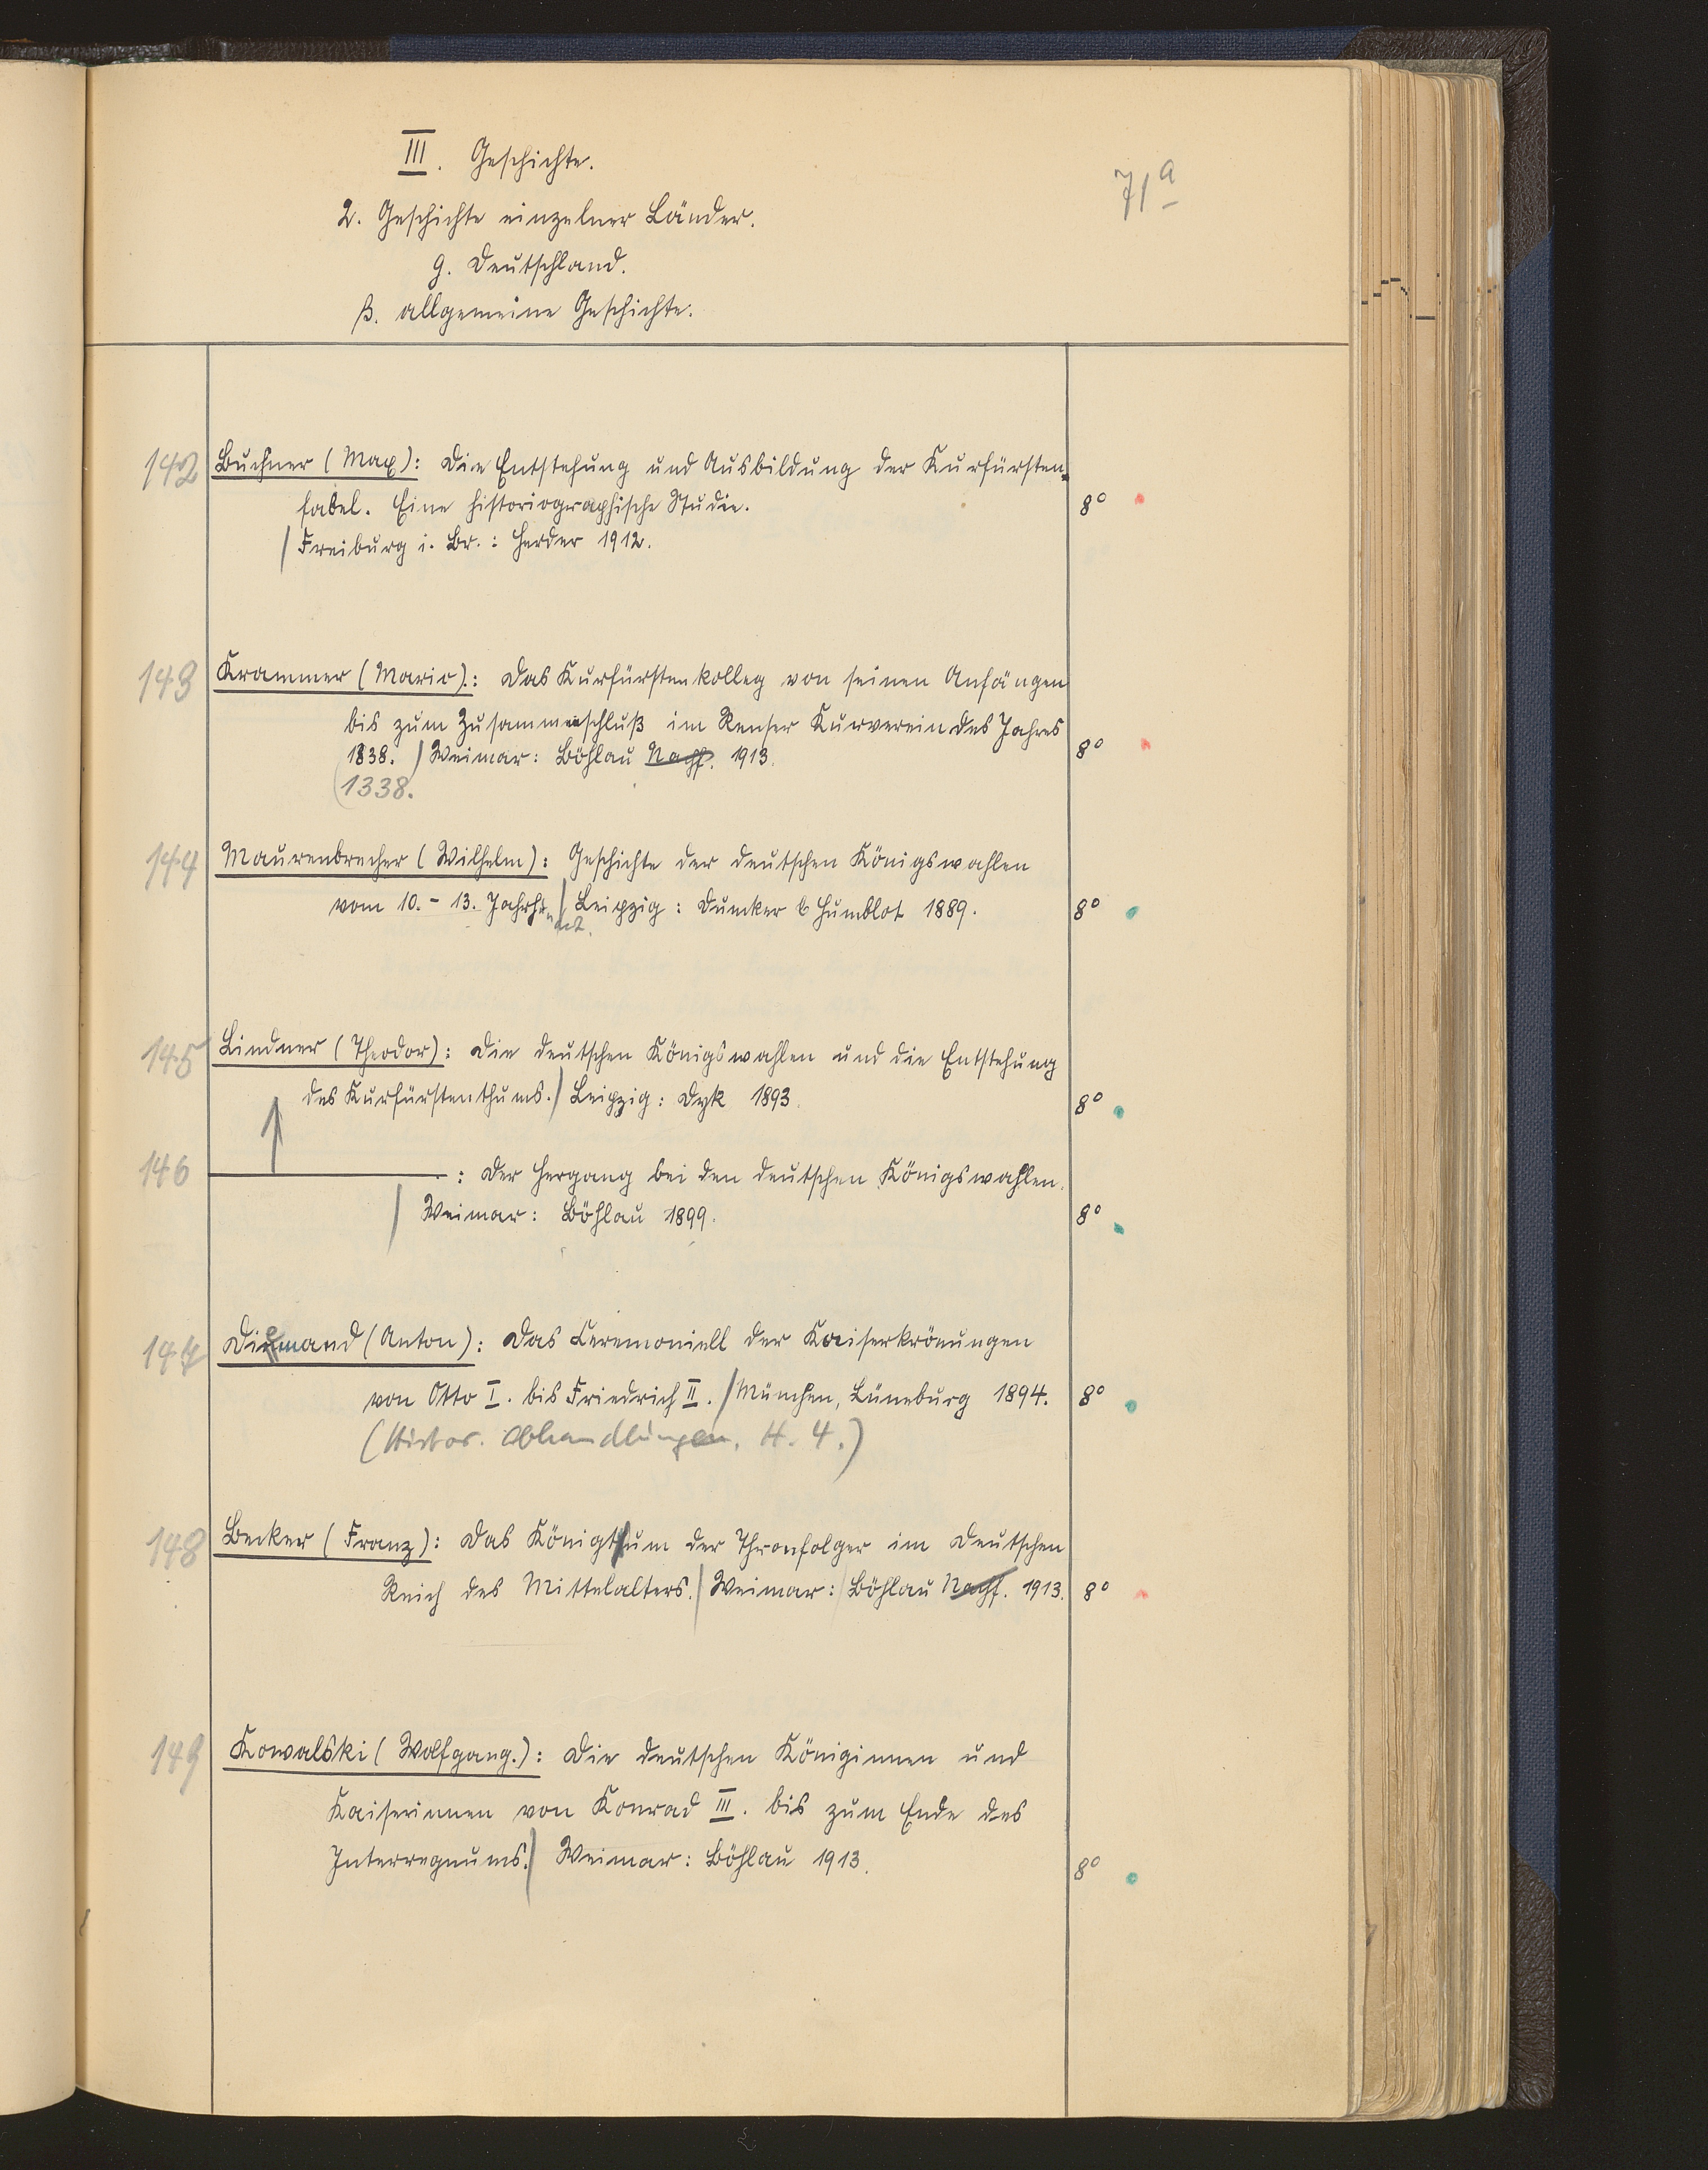 III. Geschichte.
71a
2. Geschichte einzelner Länder.
g. Deutschland.
β. allgemeine Geschichte.
142 Buchner (Max): Die Entstehung und Ausbildung der Kurfürsten-
fabel. Eine historiographische Studie. 8°
/ Freiburg i. Br.: Herder 1912.
143 Krammer (Mario): Das Kurfürstenkolleg von seinen Anfängen
bis zum Zusammenschluß im Renser Kurverein des Jahres
1838. / Weimar: Böhlau Nachf. 1913. 8°
(1338.
144 Maurenbrecher (Wilhelm): Geschichte der deutschen Königswahlen
vom 10.-13. Jahrhundert. / Leipzig: Duncker & Humblot 1889. 8°
145 Lindner (Theodor): Die deutschen Königswahlen und die Entstehung
des Kurfürstenthums. / Leipzig: Dyk 1893. 8°
146 : Der Hergang bei den deutschen Königswahlen.
/ Weimar: Böhlau 1899. 8°
147 Diemand (Anton): Das Ceremoniell der Kaiserkrönungen
von Otto I. bis Friedrich II. / München, Lüneburg 1894. 8°
(Histor. Abhandlungen. H. 4.)
148 Becker (Franz): Das Königthum der Thronfolger im Deutschen
Reich des Mittelalters. / Weimar: / Böhlau Nachf. 1913. 8°
149 Kowalski (Wolfgang.): Die deutschen Königinnen und
Kaiserinnen von Konrad III. bis zum Ende des
Interregnums. / Weimar: Böhlau 1913. 8°